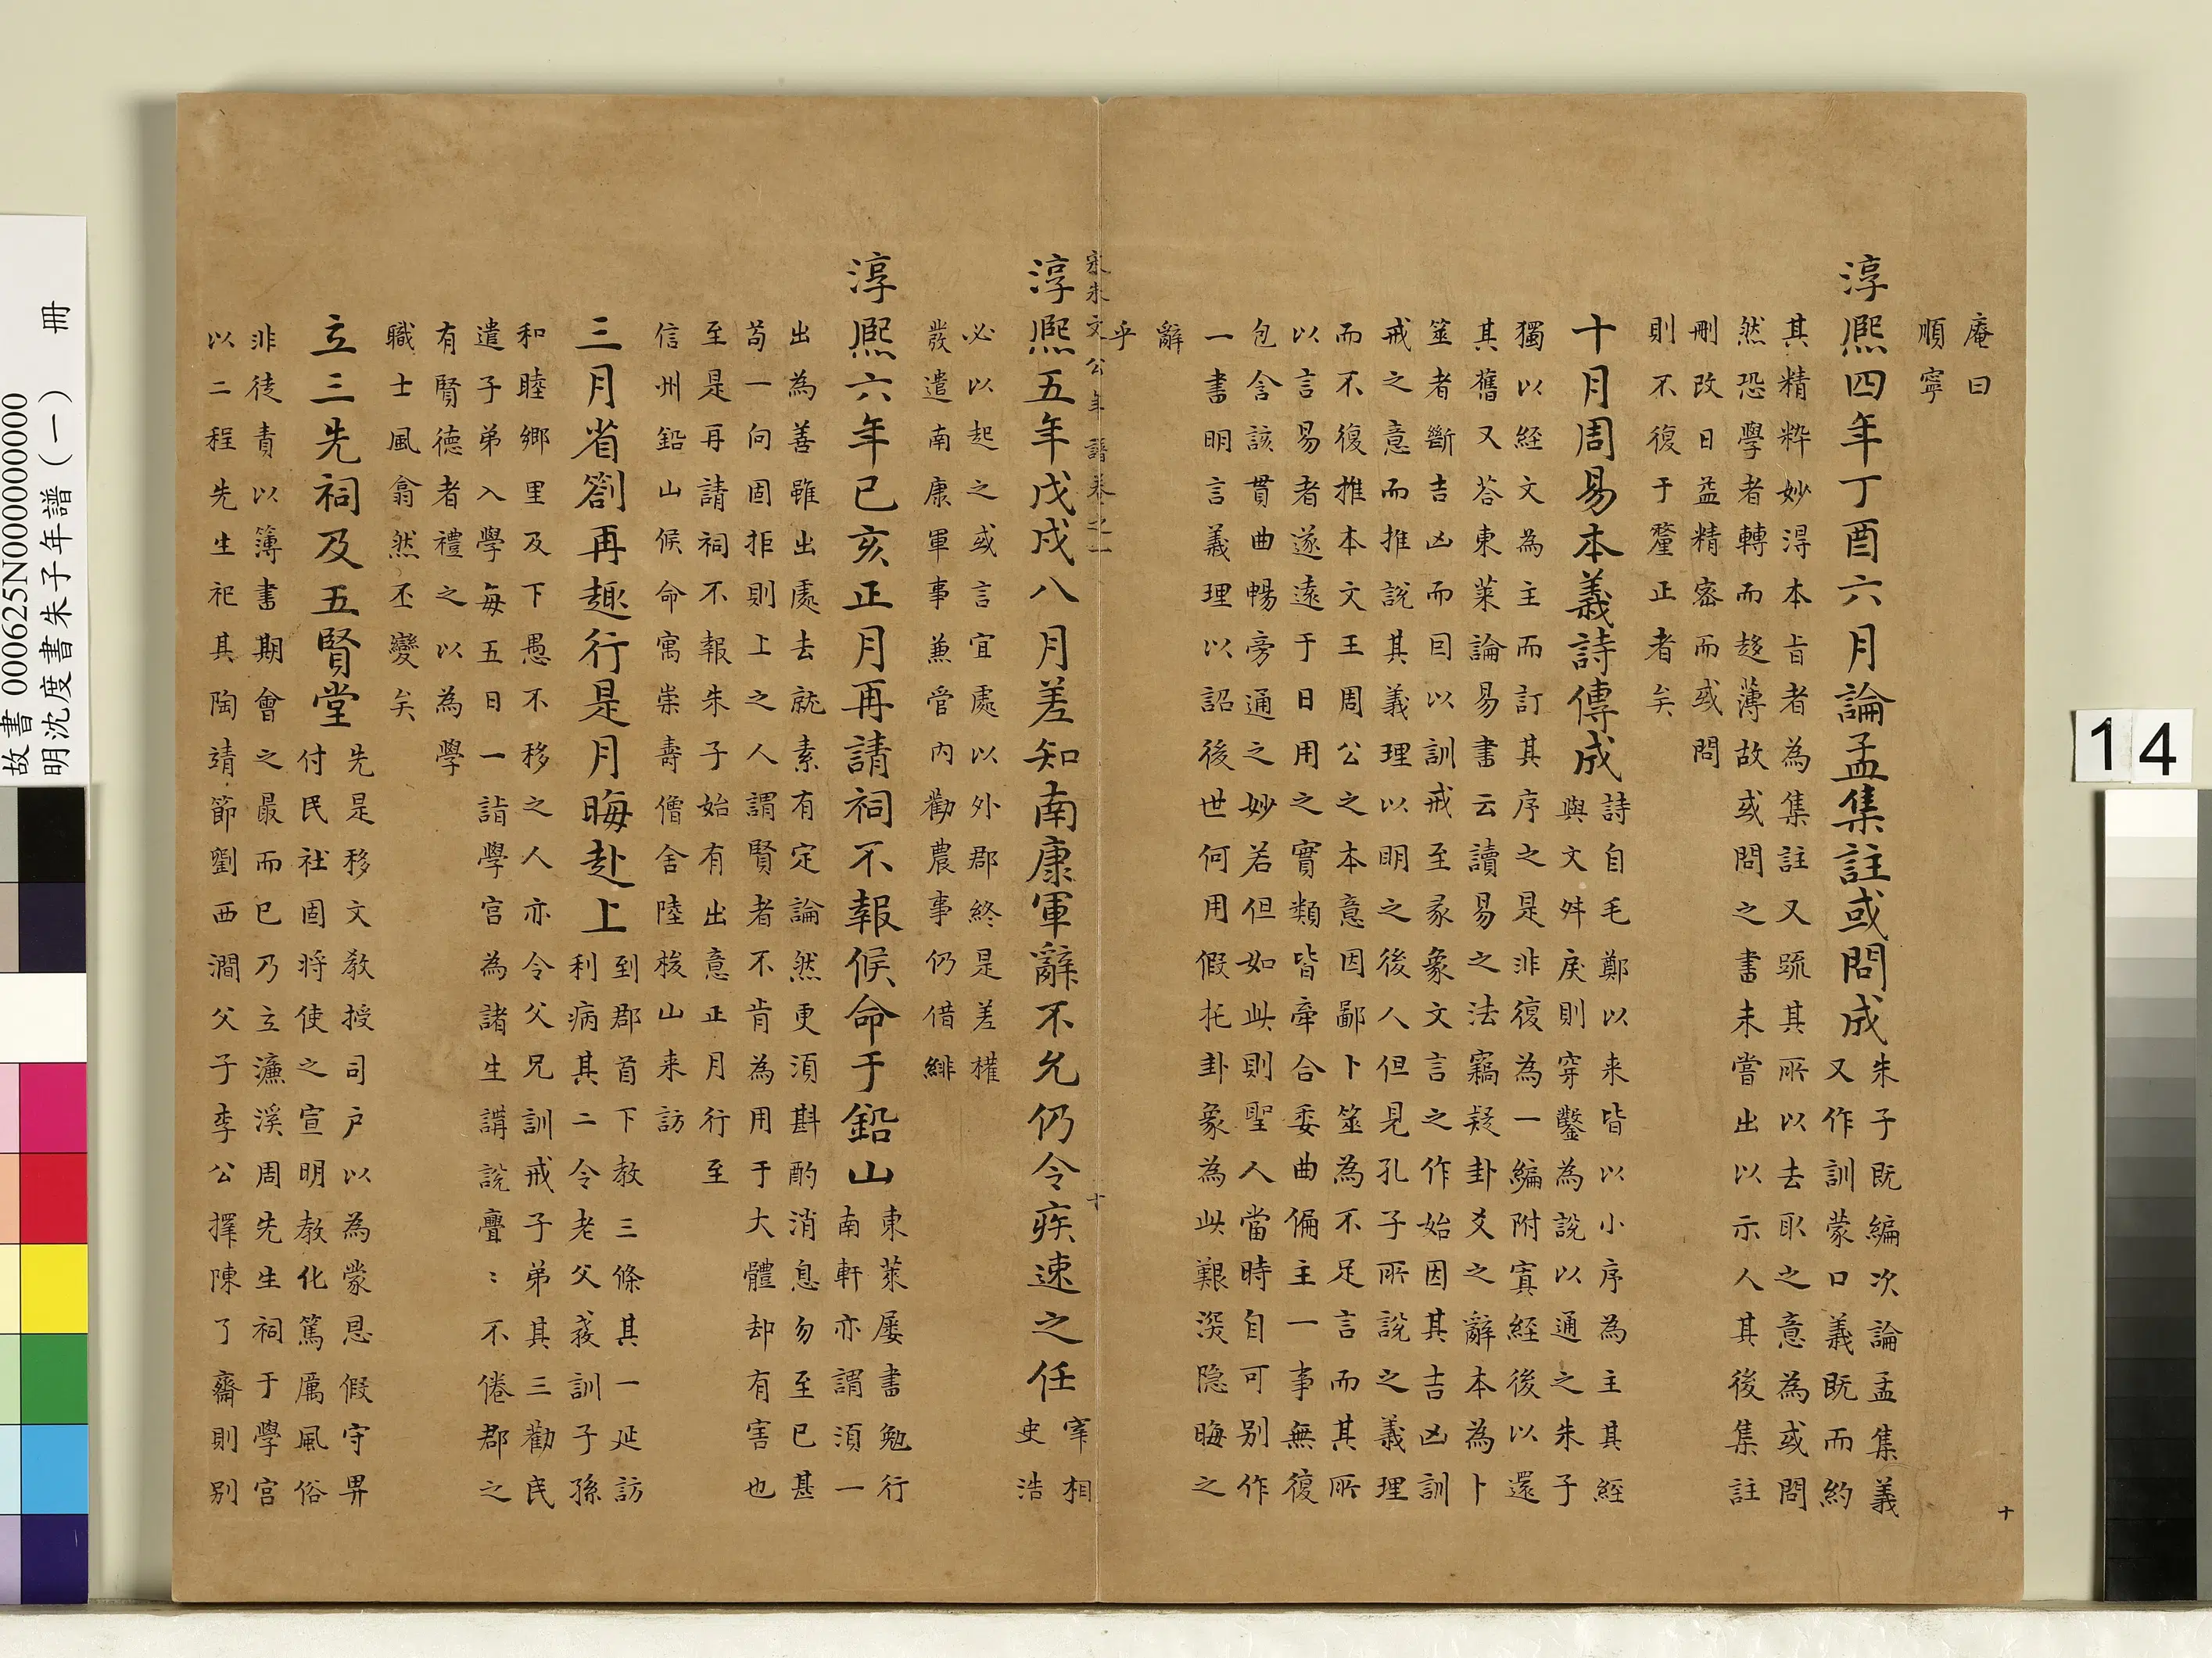 庵曰
順寧
淳熙四年丁酉六月論孟集註或問成
朱子既編次論孟集義
又作訓蒙口義既而約
其精粹妙淂本㫖者為集註又疏其所以去取之意為或問
然恐學者轉而趍薄故或問之書未嘗出以示人其後集註
刪改日益精密而或問
則不復于釐正者矣
十月周易本義詩傳成
詩自毛鄭以来皆以小序為主其經
與文舛戾則穿鑿為說以通之朱子
獨以経文為主而訂其序之是非復為一編附寘經後以還
其舊又荅東萊論易書云讀易之法竊疑卦爻之辭本為卜
筮者斷吉凶而因以訓戒至彖象文言之作始因其吉凶訓
戒之意而推說其義理以明之後人但見孔子所說之義理
而不復推本文王周公之本意因鄙卜筮為不足言而其所
以言易者遂遠于日用之實類皆牽合委曲偏主一事無復
包含該貫曲暢旁通之妙若但如此則聖人當時自可别作
一書明言義理以詔後世何用假托卦象為此艱深隐晦之
辭
乎
十
宋朱文公年譜卷之一
十
淳熙五年戊戌八月差知南康軍辭不允仍令疾速之任
宰相
史浩
必以起之或言宜處以外郡終是差權
發遣南康軍事兼管內勸農事仍借緋
淳熙六年己亥正月再請祠不報候命于鉛山
東萊屡書勉行
南軒亦謂須一
出為善雖出處去就素有定論然更須斟酌消息勿至已甚
苟一向固拒則上之人謂賢者不肯為用于大體却有害也
至是再請祠不報朱子始有出意正月行至
信州鉛山候命寓崇壽僧舍陸梭山来訪
三月省劄再趣行是月晦赴上
到郡首下教三條其一延訪
利病其二令老父莪訓子孫
和睦鄉里及下愚不移之人亦令父兄訓戒子弟其三勸民
遣子弟入學每五日一詣學宫為諸生講說亹〻不倦郡之
有賢德者禮之以為學
職士風翕然丕變矣
立三先祠及五賢堂
先是移文教授司户以為蒙恩假守畀
付民社固将使之宣明教化篤厲風俗
非徒責以簿書期會之最而已乃立濂溪周先生祠于學宫
以二程先生祀其陶靖節劉西澗父子李公擇陳了齋則别
故書 000625N000000000
明沈度書朱子年譜（一） 冊
14